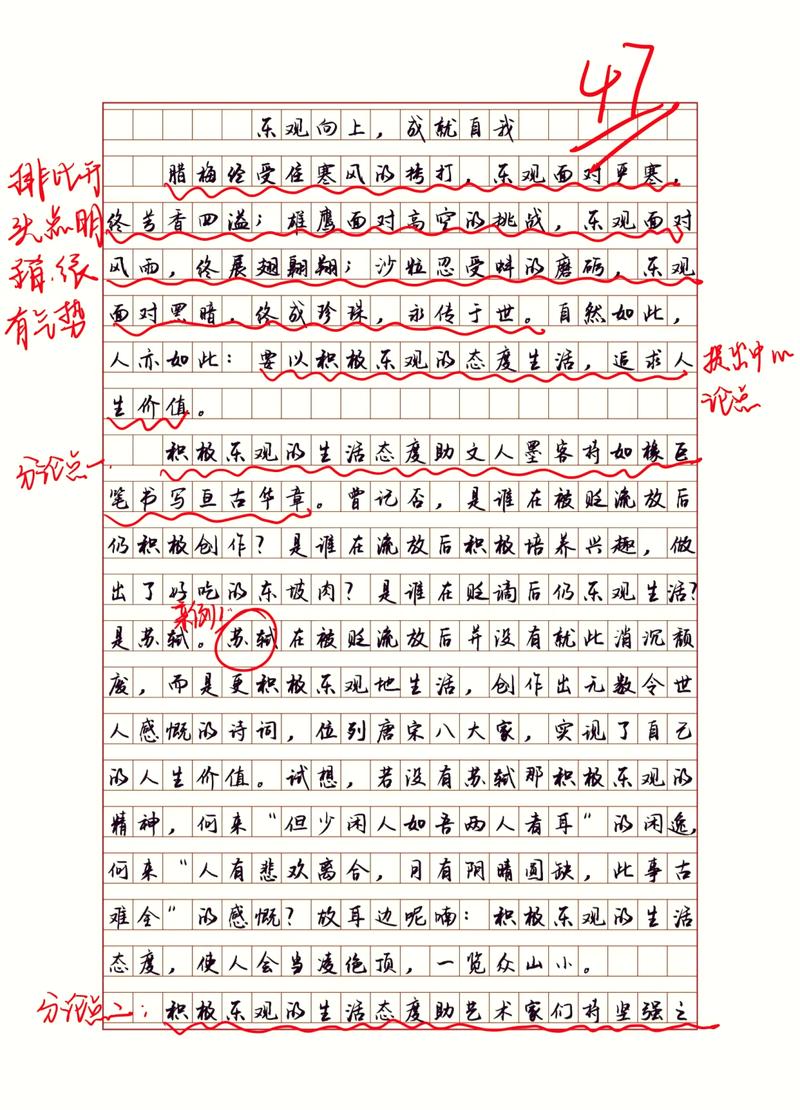 47
乐观向上，成就自我
腊梅经受住寒风的拷打，乐观面对严寒，
终芳香四溢；雄鹰面对高空的挑战，乐观面对
风雨，终展翅翱翔；沙粒忍受蚌的磨砺，乐观
面对黑暗，终成珍珠，永传于世。自然如此，
人亦如此：要以积极乐观的态度生活，追求人
生价值。
积极乐观的生活态度助文人墨客持如椽巨
笔书写亘古华章。曾记否，是谁在被贬流放后
仍积极创作？是谁在流放后积极培养兴趣，做
出了好吃的东坡肉？是谁在贬谪后仍乐观生活？
是苏轼。苏轼在被贬流放后并没有就此消沉颓
废，而是更积极乐观地生活，创作出无数令世
人感慨的诗词，位列唐宋八大家，实现了自己
的人生价值。试想，若没有苏轼那积极乐观的
精神，何来“但少闲人如吾两人者耳”的闲逸，
何来“人有悲欢离合，月有阴晴圆缺，此事古
难全”的感慨？故耳边呢喃：积极乐观的生活
态度，使人会当凌绝顶，一览众山小。
积极乐观的生活态度助艺术家们持坚强之
排比开
头点明
很
有气势
提出中心
论点
分论点一
案例1
分论点二：